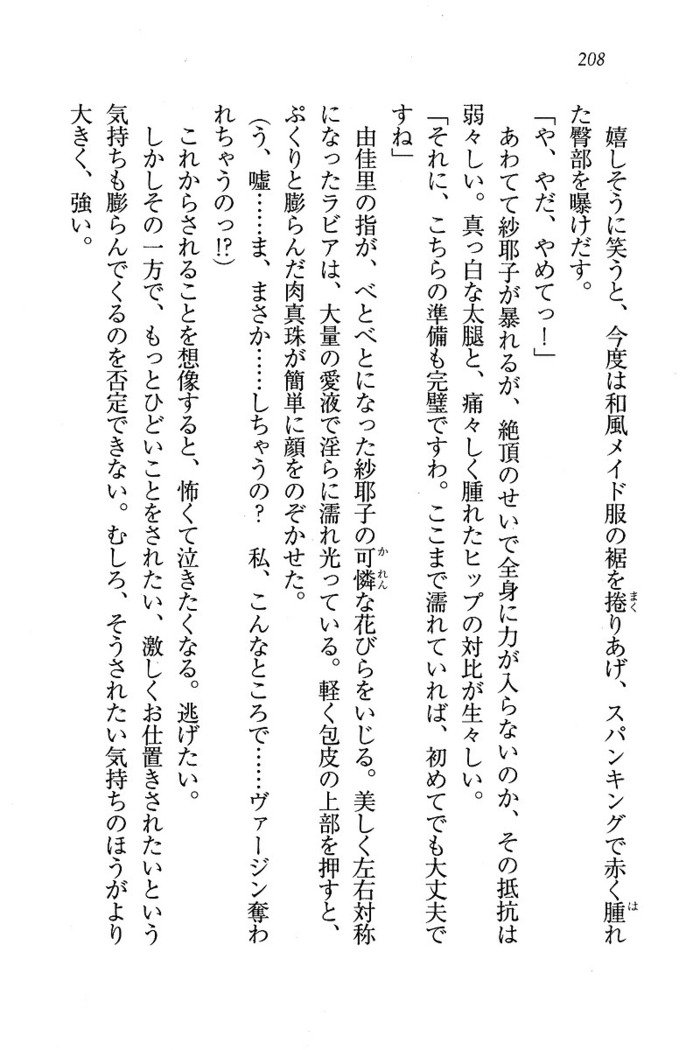 208
嬉しそうに笑うと、今度は和風メイド服の裾を捲りあげ、スパンキングで赤く腫れ
た臀部を曝けだす。
「や、やだ、やめてっ！」
あわてて紗耶子が暴れるが、絶頂のせいで全身に力が入らないのか、その抵抗は
弱々しい。真っ白な太腿と、痛々しく腫れたヒップの対比が生々しい。
「それに、こちらの準備も完璧ですわ。ここまで濡れていれば、初めてでも大丈夫で
すね」
由佳里の指が、べとべとになった紗耶子の可憐な花びらをいじる。美しく左右対称
になったラビアは、大量の愛液で淫らに濡れ光っている。軽く包皮の上部を押すと、
ぷくりと膨らんだ肉真珠が簡単に顔をのぞかせた。
（う、嘘……ま、まさか……しちゃうの？　私、こんなところで……ヴァージン奪わ
れちゃうのっ!?）
これからされることを想像すると、怖くて泣きたくなる。逃げたい。
しかしその一方で、もっとひどいことをされたい、激しくお仕置きされたいという
気持ちも膨らんでくるのを否定できない。むしろ、そうされたい気持ちのほうがより
大きく、強い。